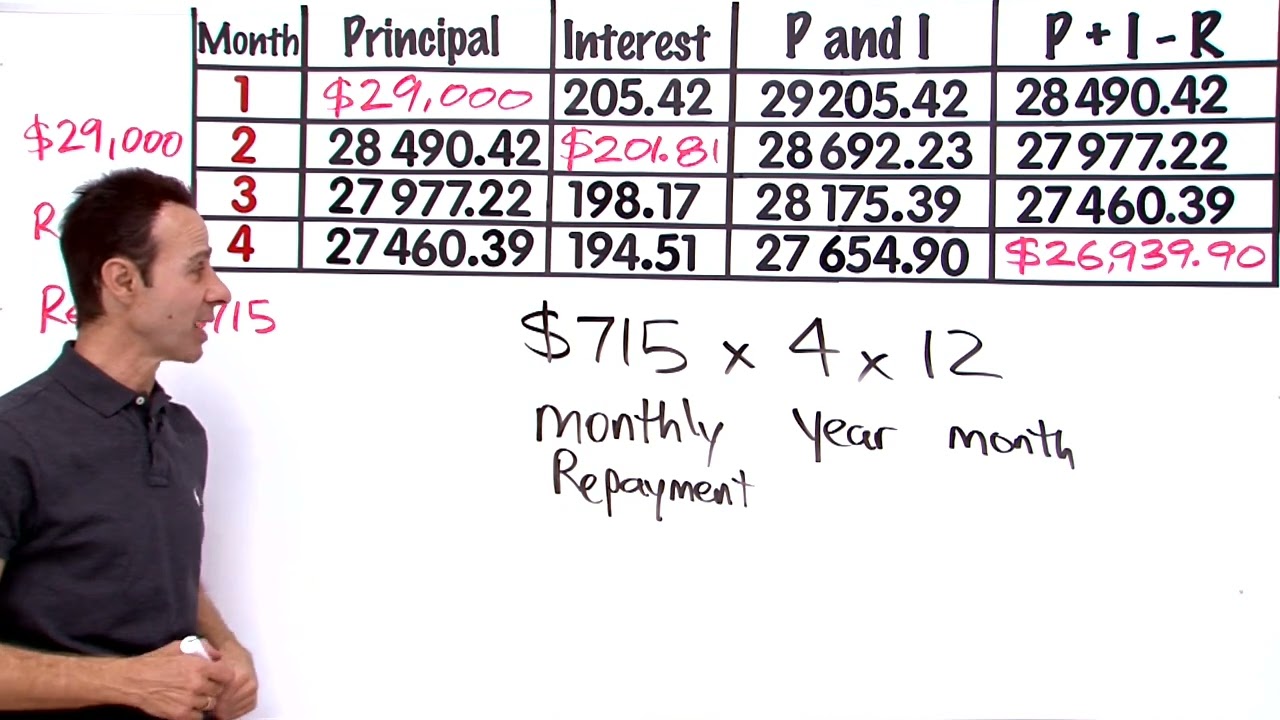 Month Principal Interest P and I P + I - R
1 $29,000 205.42 29205.42 28490.42
2 28490.42 $201.81 28692.23 27977.22
3 27977.22 198.17 28175.39 27460.39
4 27460.39 194.51 27654.90 $26,939.90
$29,000
R
Re 715
$715 x 4 x 12
monthly year month
Repayment